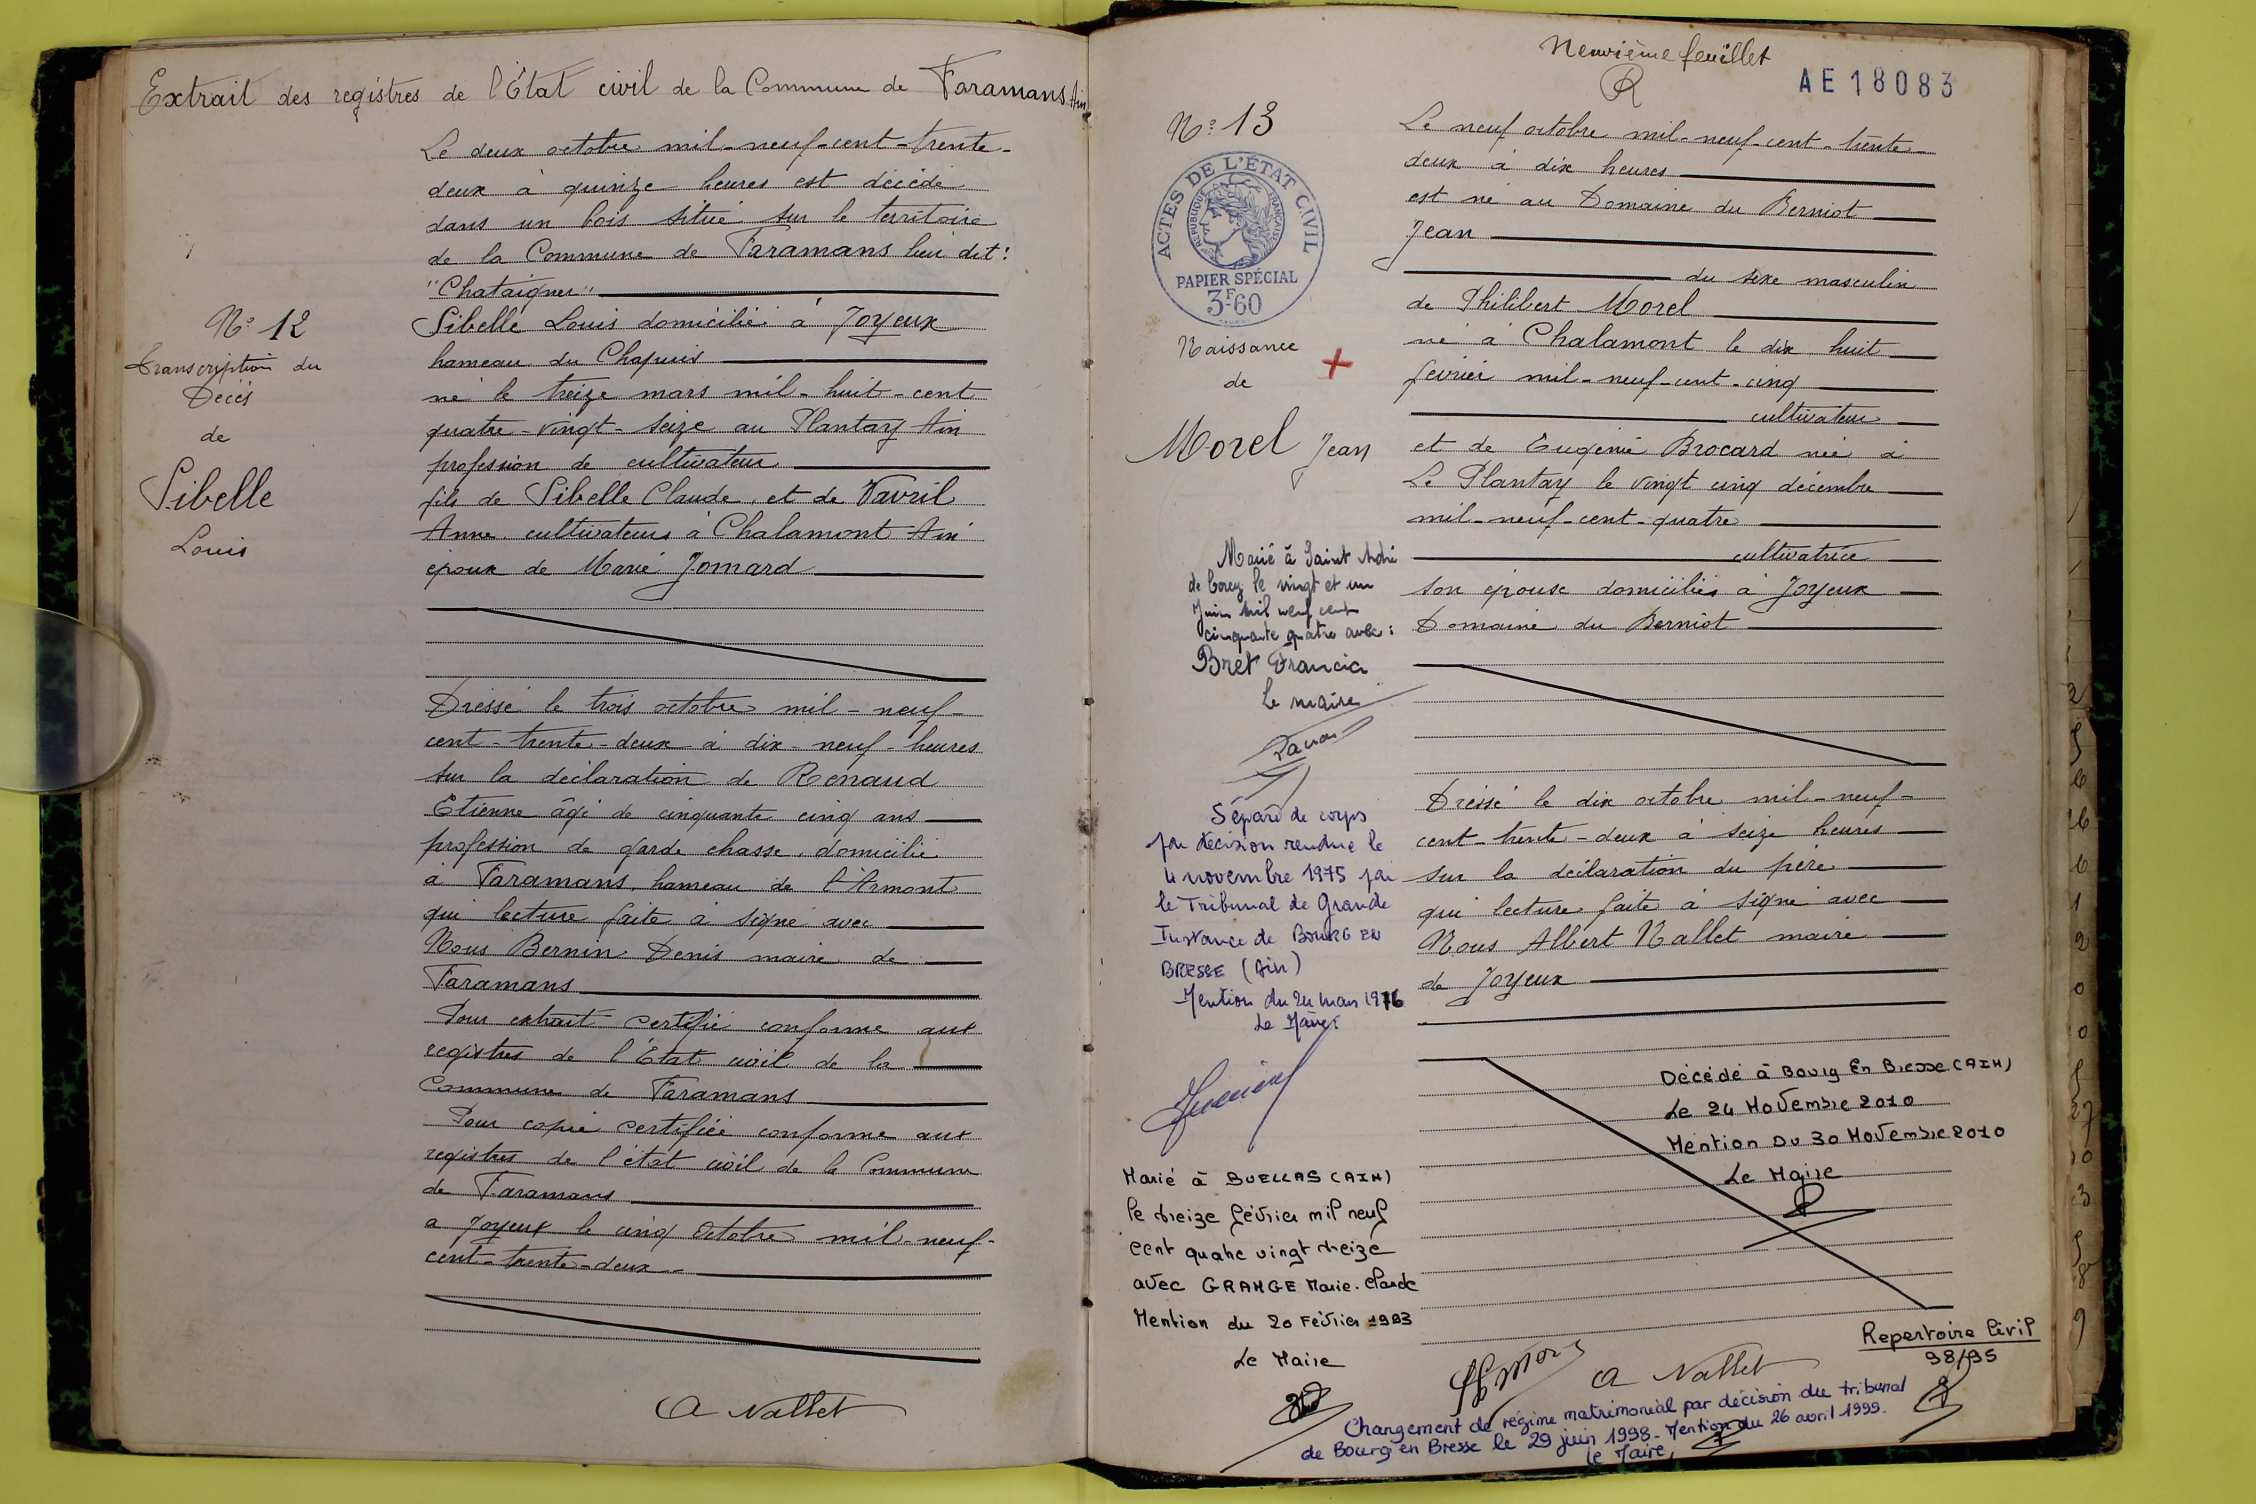 Extrait des registres de l'État civil de la Commune de Faramans Ain
Le deux octobre mil-neuf-cent-trente-
deux à quinze heures est décédé
dans un bois situé sur le territoire
de la Commune de Faramans lieu dit:
"Chataigner"
Nº 12
Transcription du
Décès
de
Sibelle
Louis
Sibelle Louis domicilié à Joyeux
hameau du Chapuis
né le treize mars mil-huit-cent
quatre-vingt-seize au Plantay Ain
profession de cultivateur
fils de Sibelle Claude, et de Vavril
Anne cultivateurs à Chalamont Ain
époux de Marie Jomard
Dressé le trois octobre mil-neuf-
cent-trente-deux à dix-neuf-heures
sur la déclaration de Renaud
Etienne âgé de cinquante cinq ans
profession de garde chasse, domicilié
à Faramans, hameau de l'Armont
qui lecture faite à signé avec
Nous Bernin Denis maire de
Faramans
Pour extrait certifié conforme aux
registres de l'État civil de la
Commune de Faramans
Pour copie certifiée conforme aux
registres de l'état civil de la Commune
de Faramans
a Joyeux le cinq Octobre mil-neuf-
cent-trente-deux
A Nallet
Neuvième feuillet
R
AE 18083
Nº 13
ACTES DE L'ÉTAT CIVIL
RÉPUBLIQUE FRANÇAISE
PAPIER SPÉCIAL
3F-60
Naissance
de
Morel Jean
Le neuf octobre mil-neuf-cent-trente-
deux à dix heures
est né au Domaine du Berniot
Jean
du sexe masculin
de Philibert Morel
né à Chalamont le dix huit
février mil-neuf-cent-cinq
cultivateur
et de Eugénie Brocard née à
Le Plantay le vingt cinq décembre
mil-neuf-cent-quatre
cultivatrice
son épouse domiciliés à Joyeux
Domaine du Berniot
Dressé le dix octobre mil-neuf-
cent-trente-deux à seize heures
sur la déclaration du père
qui lecture faite à signé avec
Nous Albert Nallet maire
de Joyeux
Marié à Saint André
de Corcy le vingt et un
Juin mil neuf cent
cinquante quatre avec:
Bret Francia
le maire
Séparé de corps
par décision rendue le
4 novembre 1975 par
le Tribunal de Grande
Instance de BOURG EN
BRESSE (Ain)
Mention du 24 mars 1976
Le Maire
Marié à BUELLAS (AIN)
le treize février mil neuf
cent quatre vingt treize
avec GRANGE Marie-Claude
Mention du 20 Février 1993
Le Maire
Décédé à Bourg En Bresse (AIN)
Le 24 Novembre 2010
Mention Du 30 Novembre 2010
Le Maire
A Nallet
Repertoire Civil
98/95
Changement de régime matrimonial par décision du tribunal
de Bourg en Bresse le 29 juin 1998 - Mention du 26 avril 1999.
Le Maire,